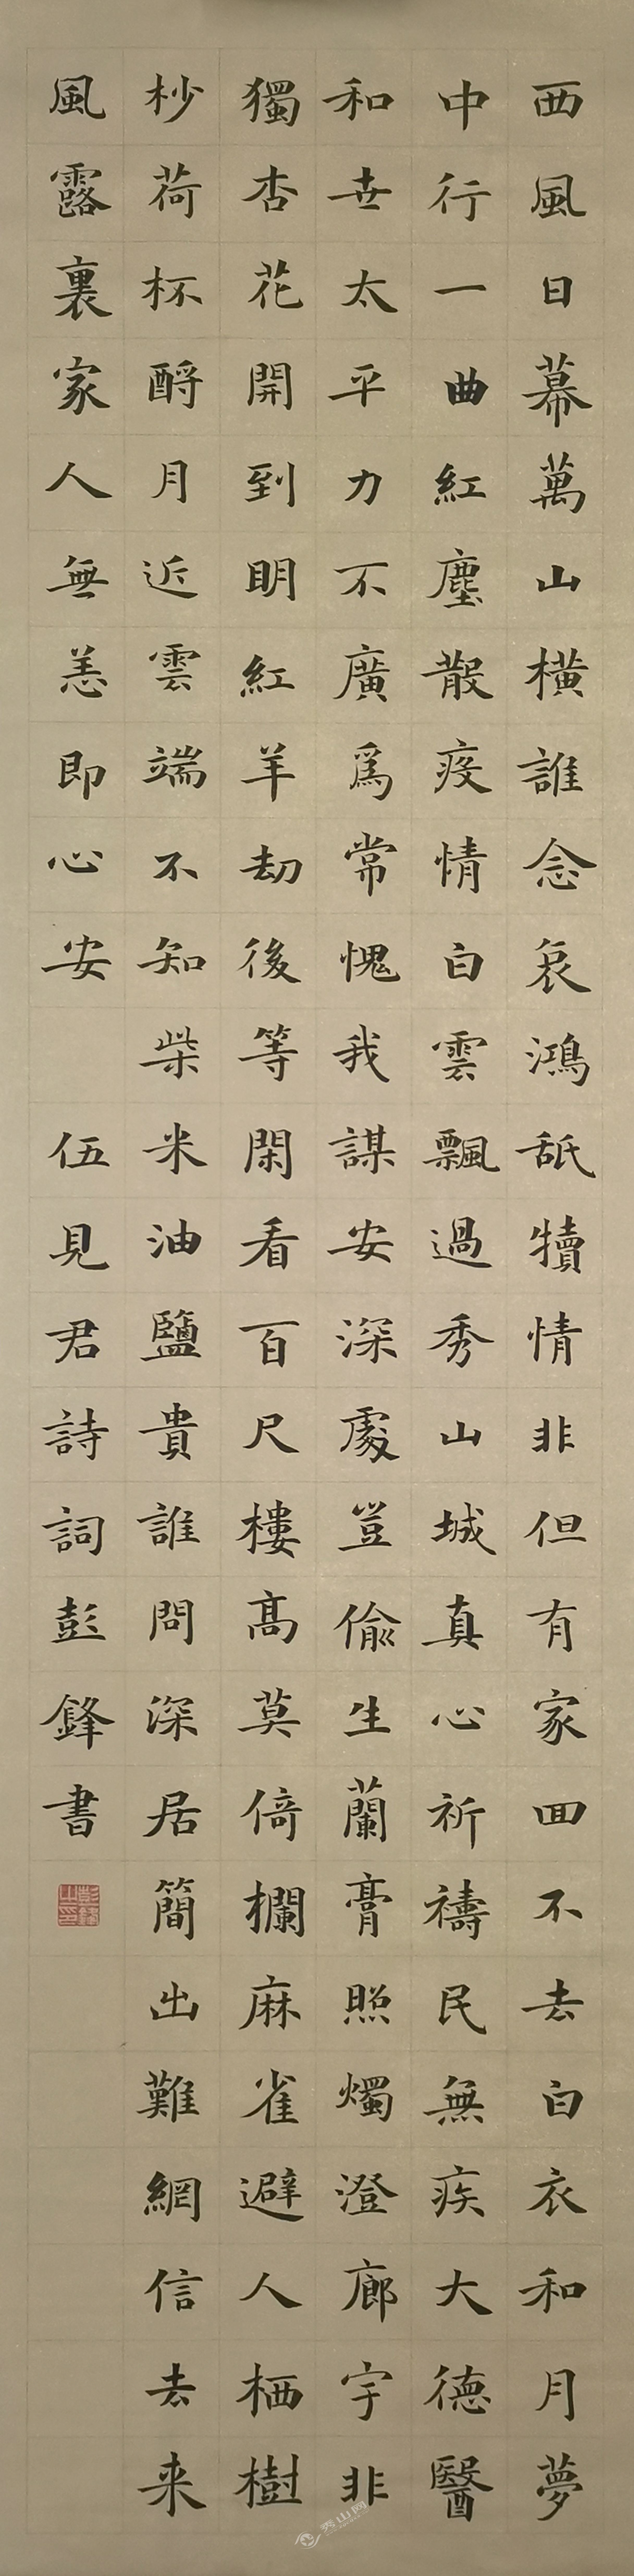 西風日幕萬山橫誰念哀鴻舐犢情非但有家回不去白衣和月夢
中行一曲紅塵散疫情白雲飄過秀山城真心祈禱民無疾大德醫
和世太平力不廣為常愧我謀安深處豈偷生蘭膏照燭澄廊宇非
獨杏花開到明紅羊劫後等閑看百尺樓高莫倚欄麻雀避人栖樹
杪荷杯酹月近雲端不知柴米油鹽貴誰問深居簡出難網信去来
風露裏家人無恙即心安 伍見君詩詞彭鋒書
彭鋒之印
秀山网